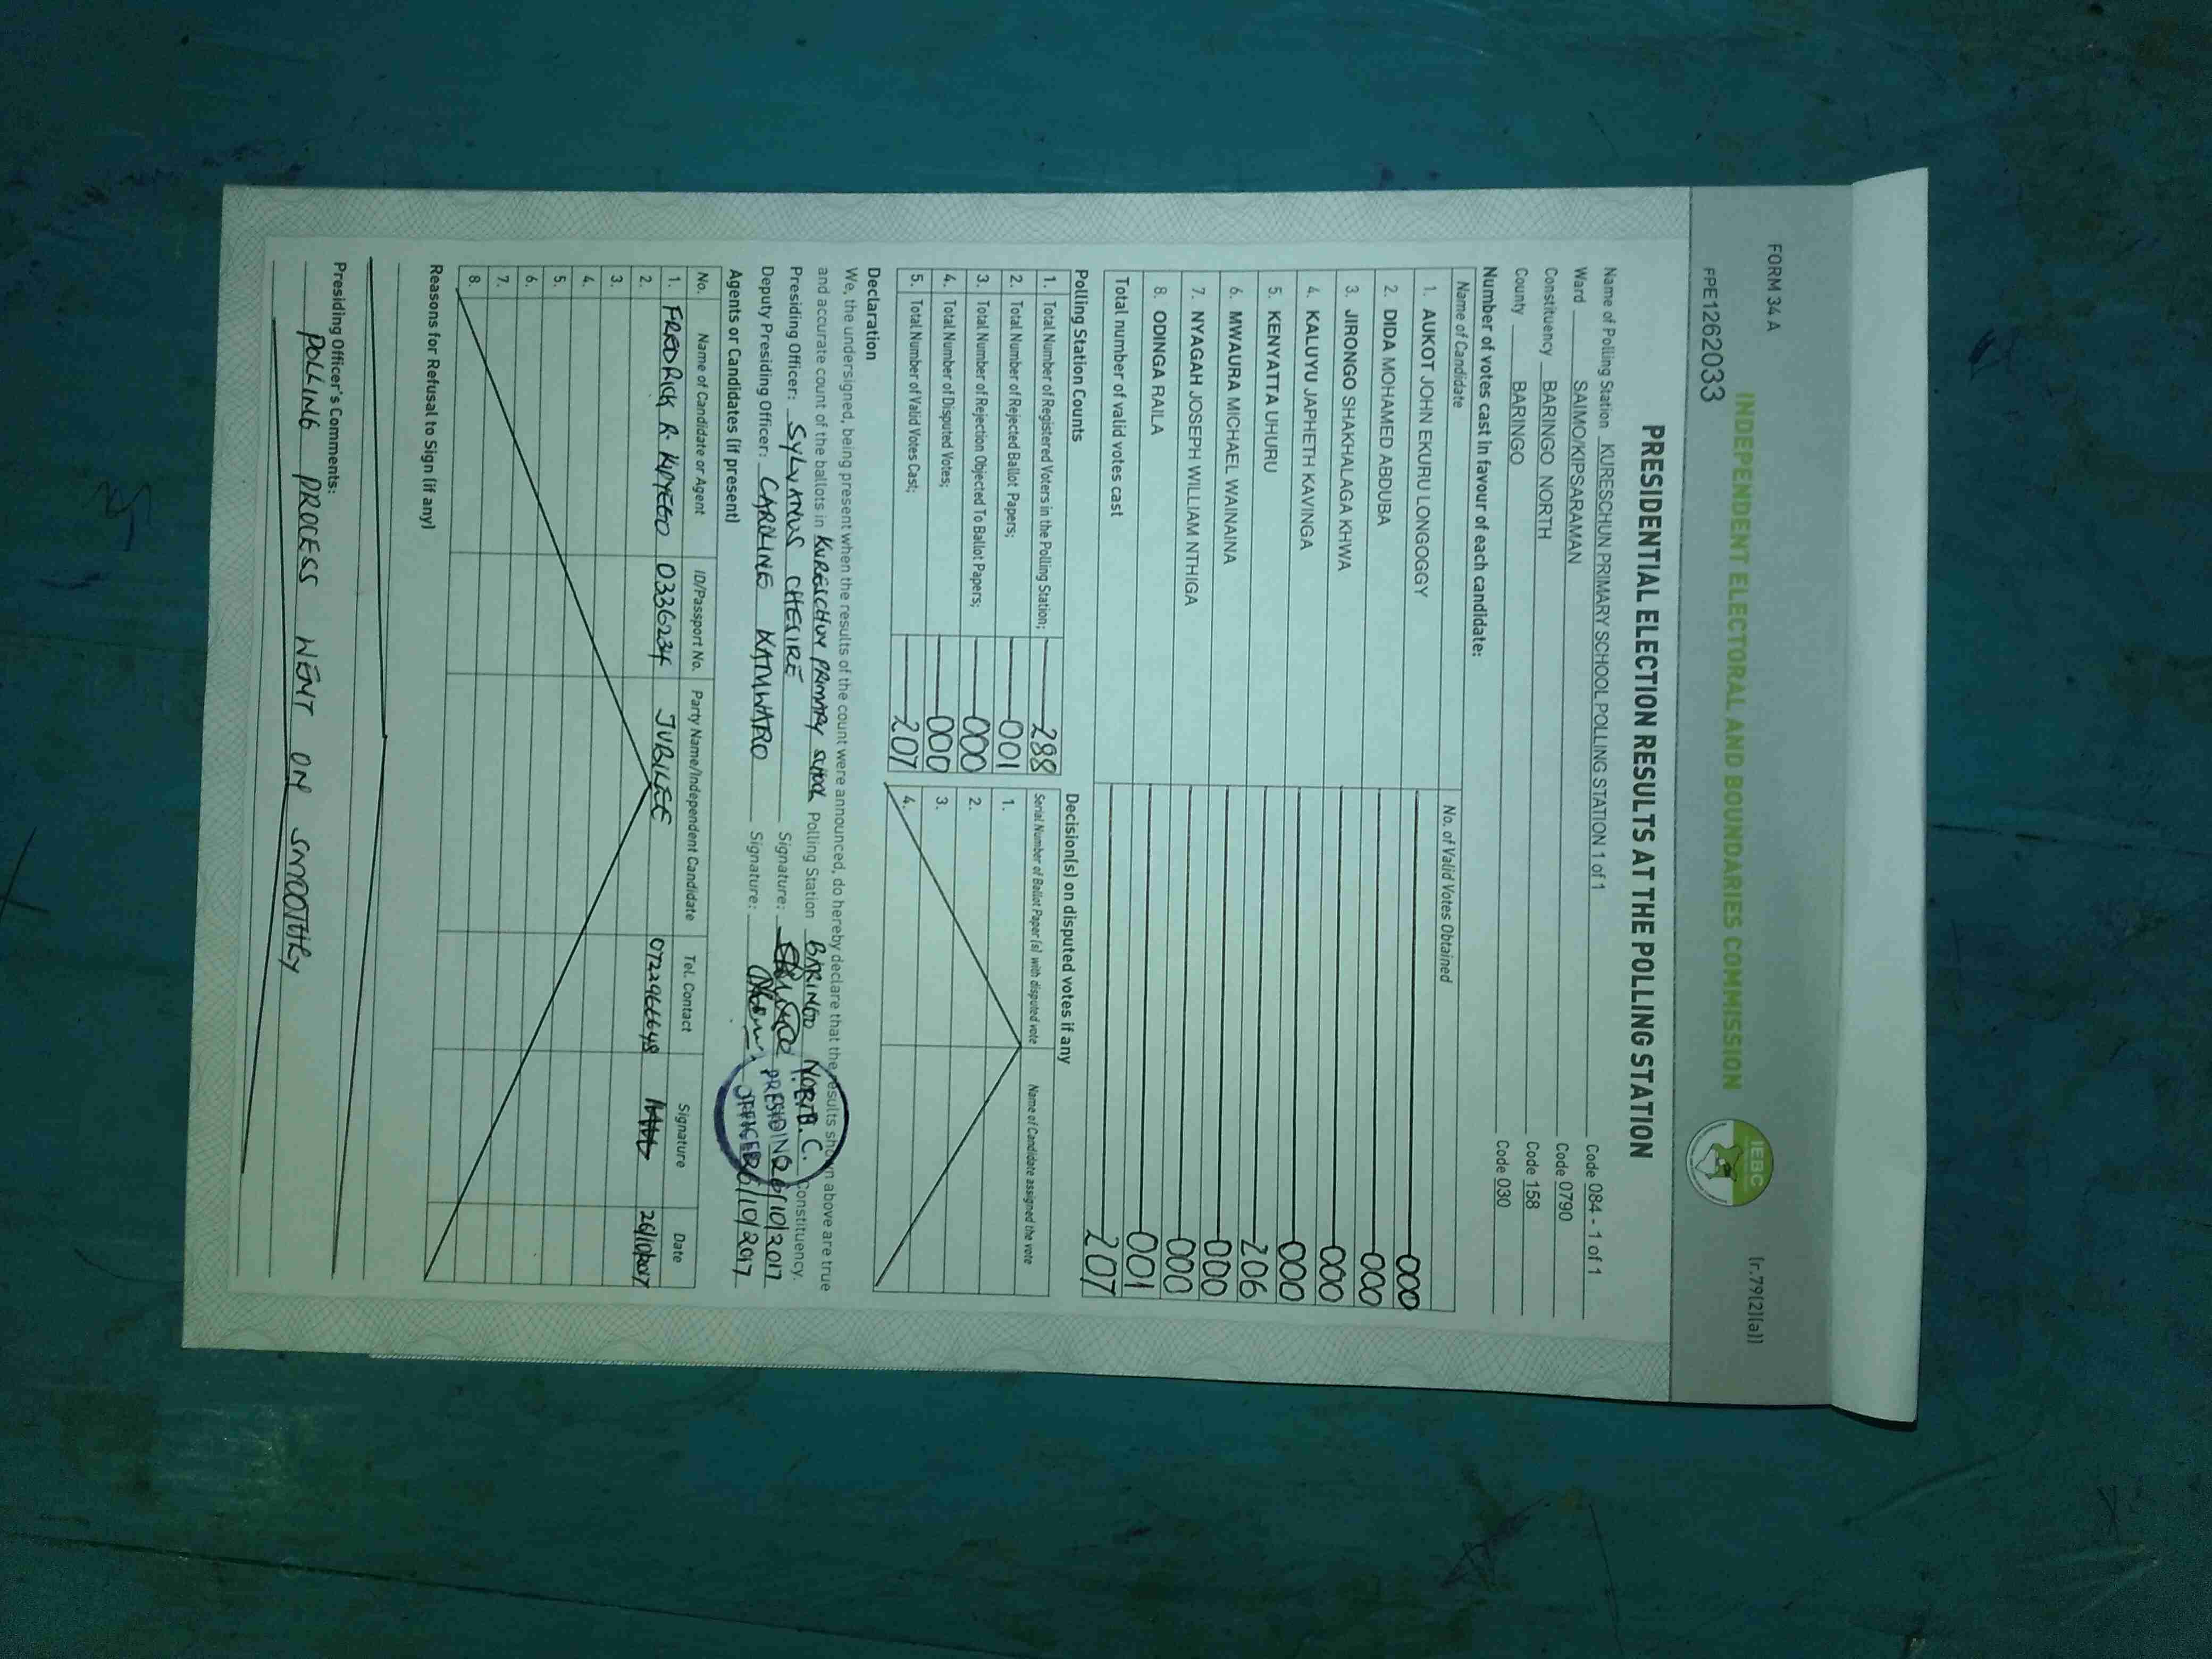 FORM 34A
(r.79(2)(a))
INDEPENDENT ELECTORAL AND BOUNDARIES COMMISSION
IEBC
PPE1262033
PRESIDENTIAL ELECTION RESULTS AT THE POLLING STATION
Name of Polling Station KURESCHUN PRIMARY SCHOOL POLLING STATION 1 of 1 Code 084 - 1 of 1
Ward SAIMO/KIPSARAMAN Code 0790
Constituency BARINGO NORTH Code 158
County BARINGO Code 030
Number of votes cast in favour of each candidate:
Name of Candidate No. of Valid Votes Obtained
1. AUKOT JOHN EKURU LONGOGGY 000
2. DIDA MOHAMED ABDUBA 000
3. JIRONGO SHAKHALAGA KHWA 000
4. KALUYU JAPHETH KAVINGA 000
5. KENYATTA UHURU 206
6. MWAURA MICHAEL WAINAINA 000
7. NYAGAH JOSEPH WILLIAM NTHIGA 000
8. ODINGA RAILA 001
Total number of valid votes cast 207
Polling Station Counts
1. Total Number of Registered Voters in the Polling Station; 288
2. Total Number of Rejected Ballot Papers; 001
3. Total Number of Rejection Objected To Ballot Papers; 000
4. Total Number of Disputed Votes; 000
5. Total Number of Valid Votes Cast; 207
Decision(s) on disputed votes if any
Serial Number of Ballot Paper(s) with disputed vote Name of Candidate assigned the vote
1.
2.
3.
4.
Declaration
We, the undersigned, being present when the results of the count were announced, do hereby declare that the results shown above are true
and accurate count of the ballots in KURESCHUN PRIMARY SCHOOL Polling Station BARINGO NORTH Constituency.
Presiding Officer: SYLVANUS CHESIRE Signature: 26/10/2017
Deputy Presiding Officer: CAROLINE KATWARO Signature: 26/10/2017
PRESIDING
OFFICER
Agents or Candidates (if present)
No. Name of Candidate or Agent ID/Passport No. Party Name/Independent Candidate Tel. Contact Signature Date
1. FREDRICK R. KIPYEGO 0336234 JUBILEE 0722966648 26/10/2017
2.
3.
4.
5.
6.
7.
8.
Reasons for Refusal to Sign (if any)
Presiding Officer's Comments:
POLLING PROCESS WENT ON SMOOTHLY